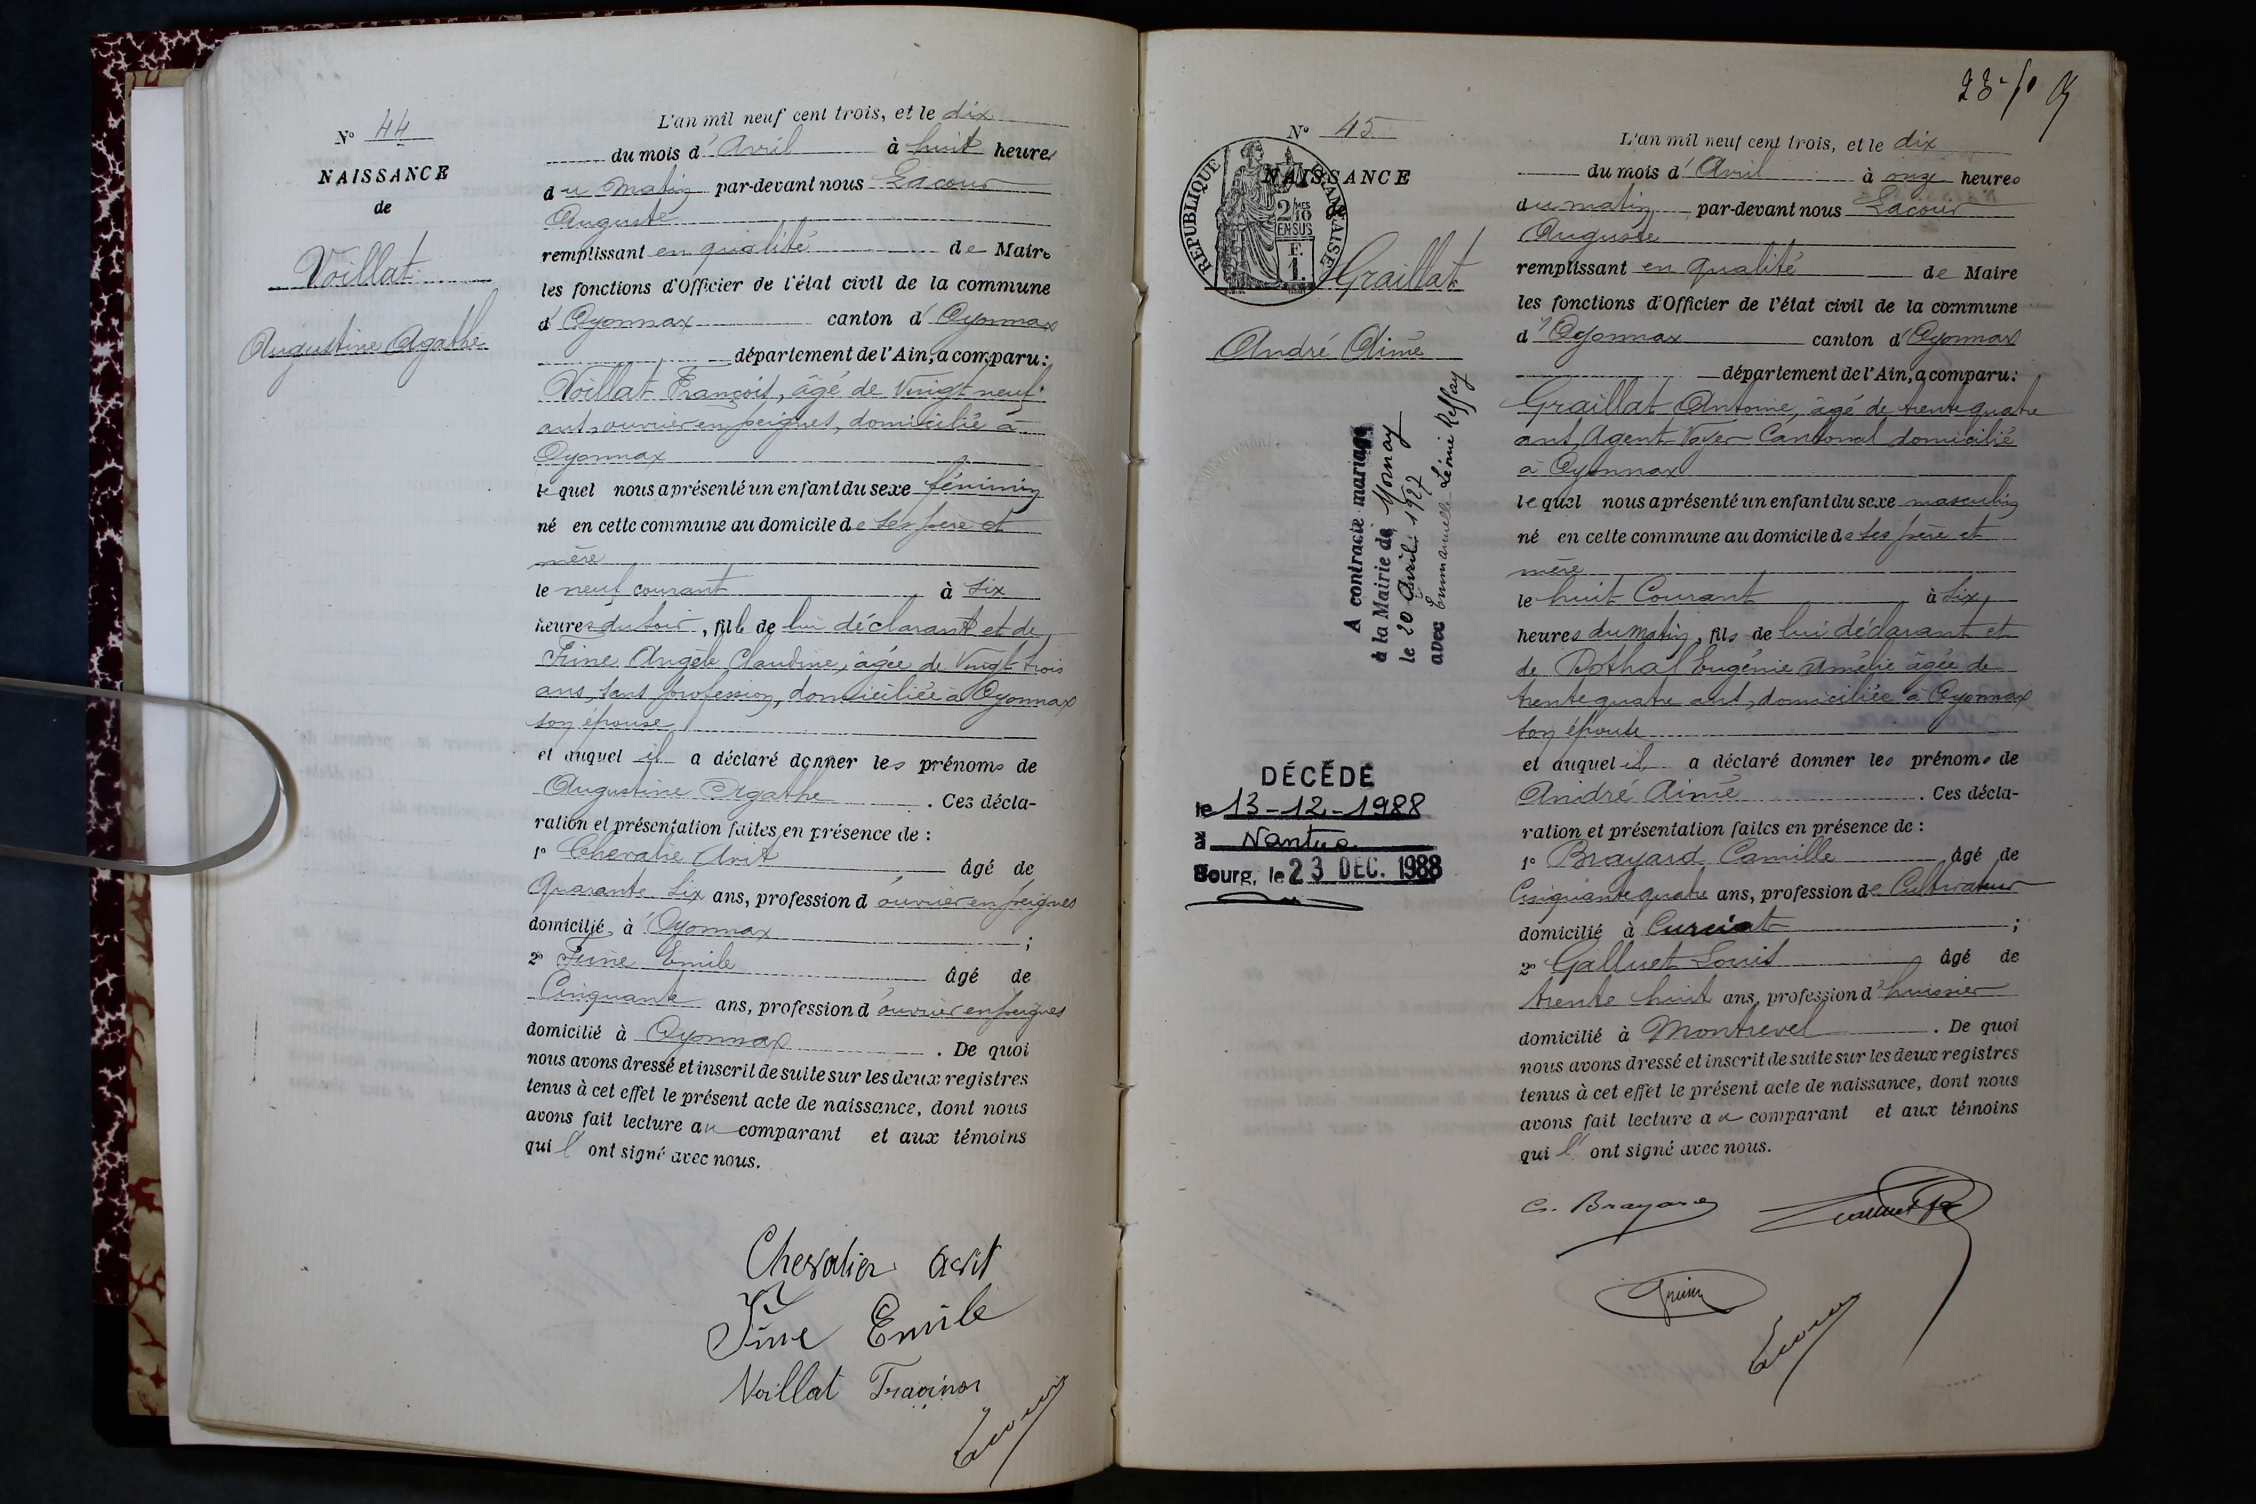 N° 44
NAISSANCE
de
Voillat
Augustine Agathe
L'an mil neuf cent trois, et le dix
du mois d'Avril à huit heures
du matin par-devant nous Lacour
Auguste
remplissant en qualité de Maire
les fonctions d'Officier de l'état civil de la commune
d'Oyonnax canton d'Oyonnax
département de l'Ain, a comparu :
Voillat François, âgé de vingt neuf
ans, ouvrier en peignes, domicilié à
Oyonnax
lequel nous a présenté un enfant du sexe féminin
né en cette commune au domicile de ses père et
mère
le neuf courant à six
heures du soir, fille de lui déclarant et de
Angèle Claudine, âgée de vingt trois
ans, sans profession, domiciliée à Oyonnax
son épouse
et auquel il a déclaré donner les prénoms de
Augustine Agathe. Ces décla-
ration et présentation faites en présence de :
1° Chevalie Avit âgé de
Quarante six ans, profession d'ouvrier en peignes
domicilié à Oyonnax ;
2° Emile âgé de
Cinquante ans, profession d'ouvrier en peignes
domicilié à Oyonnax. De quoi
nous avons dressé et inscrit de suite sur les deux registres
tenus à cet effet le présent acte de naissance, dont nous
avons fait lecture au comparant et aux témoins
qui l'ont signé avec nous.
Chevalier Avit
Emile
Voillat
Lacour
23 -
N° 45
NAISSANCE
de
RÉPUBLIQUE FRANÇAISE
2/10 EN SUS
F. 1.
Graillat
André Aimé
A contracté mariage
à la Mairie de Mornay
le 20 Avril 1927
avec Emmanuelle Léonie Reffay
DÉCÉDÉ
le 13-12-1988
à Nantua
Bourg, le 23 DEC. 1988
L'an mil neuf cent trois, et le dix
du mois d'Avril à onze heures
du matin par-devant nous Lacour
Auguste
remplissant en qualité de Maire
les fonctions d'Officier de l'état civil de la commune
d'Oyonnax canton d'Oyonnax
département de l'Ain, a comparu :
Graillat Antoine, âgé de trente quatre
ans, Agent Voyer Cantonal domicilié
à Oyonnax
lequel nous a présenté un enfant du sexe masculin
né en cette commune au domicile de ses père et
mère
le huit Courant à six
heures du matin, fils de lui déclarant et
de Eugénie Amélie âgée de
trente quatre ans, domiciliée à Oyonnax
son épouse
et auquel il a déclaré donner les prénoms de
André Aimé. Ces décla-
ration et présentation faites en présence de :
1° Brayard Camille âgé de
Cinquante quatre ans, profession de Cultivateur
domicilié à Curciat ;
2° Galluet Louis âgé de
trente huit ans, profession d'huissier
domicilié à Montrevel. De quoi
nous avons dressé et inscrit de suite sur les deux registres
tenus à cet effet le présent acte de naissance, dont nous
avons fait lecture au comparant et aux témoins
qui l'ont signé avec nous.
C. Brayard
Lacour